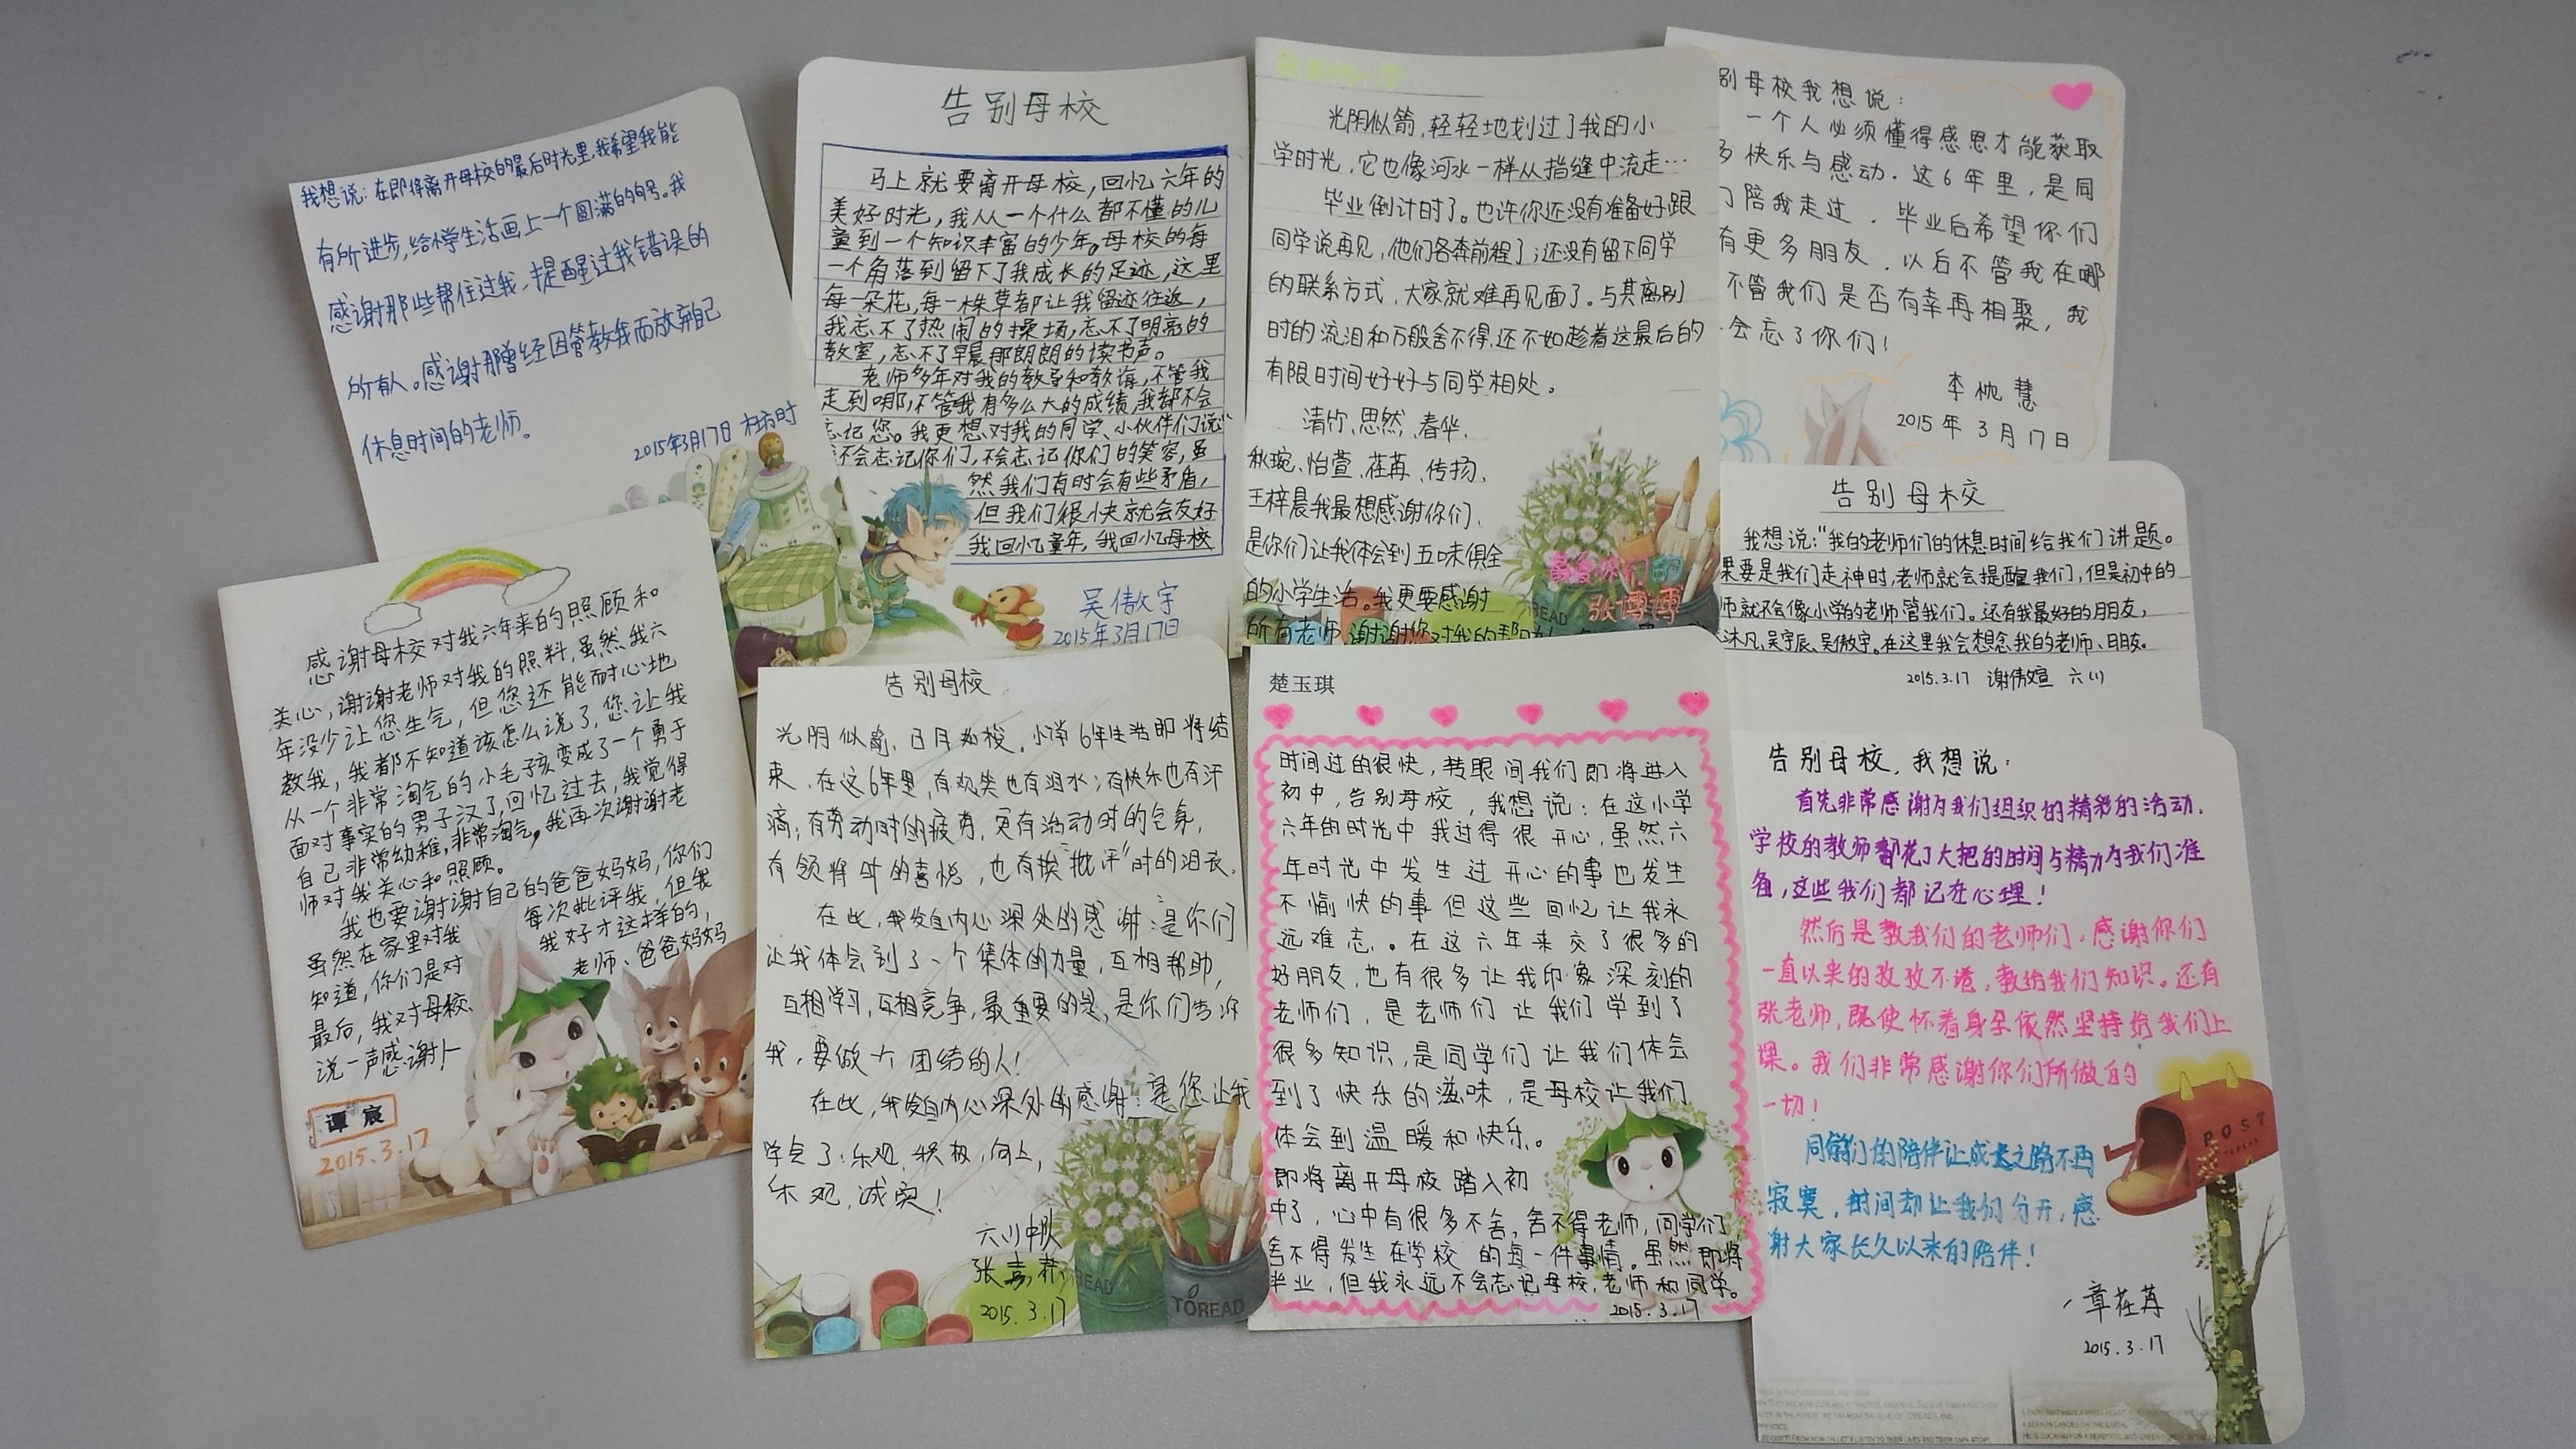 我想说：在即将离开母校的最后时光里，我希望我能
有所进步，给小学生活画上一个圆满的句号。我
感谢那些帮住过我、提醒过我错误的
所有人。感谢那曾经因管教我而放弃自己
休息时间的老师。
2015年3月17日
告别母校
马上就要离开母校，回忆六年的
美好时光，我从一个什么都不懂的儿
童到一个知识丰富的少年。母校的每
一个角落到留下了我成长的足迹，这里
每一朵花，每一株草都让我留恋往返，
我忘不了热闹的操场，忘不了明亮的
教室，忘不了早晨那朗朗的读书声。
老师多年对我的教导和教诲，不管我
走到哪，不管我有多么大的成绩，我都不会
忘记您。我更想对我的同学、小伙伴们说“
不会忘记你们，不会忘记你们的笑容，虽
然我们有时会有些矛盾，
但我们很快就会友好
我回忆童年，我回忆母校
吴傲宇
2015年3月17日
光阴似箭，轻轻地划过了我的小
学时光，它也像河水一样从指缝中流走…
毕业倒计时了。也许你还没有准备好跟
同学说再见，他们各奔前程了；还没有留下同学
的联系方式，大家就难再见面了。与其离别
时的流泪和万般舍不得，还不如趁着这最后的
有限时间好好与同学相处。
清竹、思然、春华、
秋琬、怡萱、荏苒、传扬、
王梓晨我最想感谢你们、
是你们让我体会到五味俱全
的小学生活。我更要感谢
所有老师，谢谢您对我的帮助
最爱你们的
张博博
READ
别母校我想说：
一个人必须懂得感恩才能获取
多快乐与感动．这6年里，是同
门陪我走过．毕业后希望你们
有更多朋友．以后不管我在哪
不管我们是否有幸再相聚，我
会忘了你们！
李 慧
2015年3月17日
告别母校
我想说：“我的老师们的休息时间给我们讲题。
果要是我们走神时，老师就会提醒我们，但是初中的
师就不会像小学的老师管我们。还有我最好的朋友，
沐凡、吴宇辰、吴傲宇。在这里我会想念我的老师、朋友。
2015.3.17 谢傲宣 六(1)
感谢母校对我六年来的照顾和
关心，谢谢老师对我的照料，虽然我六
年没少让您生气，但您还能耐心地
教我，我都不知道该怎么说了，您让我
从一个非常淘气的小毛孩变成了一个勇于
面对事实的男子汉了，回忆过去，我觉得
自己非常幼稚，非常淘气，我再次谢谢老
师对我关心和照顾。
我也要谢谢自己的爸爸妈妈，你们
虽然在家里对我 每次批评我，但我
知道，你们是对 我好才这样的，
最后，我对母校、 老师、爸爸妈妈
说一声感谢！
谭宸
2015.3.17
告别母校
光阴似箭、日月如梭。小学6年生活即将结
束．在这6年里，有欢笑也有泪水；有快乐也有汗
滴；有劳动时的疲劳，更有活动时的
有领奖时的喜悦，也有挨“批评”时的沮丧．
在此，我发自内心深处的感谢：是你们
让我体会到了一个集体的力量，互相帮助，
互相学习，互相竞争，最重要的是，是你们告诉
我，要做个团结的人！
在此，我发自内心深处的感谢：是您让我
学会了：乐观、积极、向上，
乐观、诚实！
六(1)中队
张嘉
2015.3.17
READ
TOREAD
楚玉琪
时间过的很快，转眼间我们即将进入
初中，告别母校，我想说：在这小学
六年的时光中我过得很开心，虽然六
年时光中发生过开心的事也发生
不愉快的事但这些回忆让我永
远难忘。在这六年来交了很多的
好朋友，也有很多让我印象深刻的
老师们，是老师们让我们学到了
很多知识，是同学们让我们体会
到了快乐的滋味，是母校让我们
体会到温暖和快乐。
即将离开母校踏入初
中了，心中有很多不舍，舍不得老师，同学们，
舍不得发生在学校的每一件事情。虽然即将
毕业，但我永远不会忘记母校，老师和同学。
2015.3.17
告别母校，我想说：
首先非常感谢为我们组织的精彩的活动．
学校的教师都花了大把的时间与精力为我们准
备，这些我们都记在心理！
然后是教我们的老师们，感谢你们
一直以来的孜孜不倦，教给我们知识。还有
张老师，既使怀着身孕依然坚持给我们上
课。我们非常感谢你们所做的
一切！
同学们的陪伴让成长之路不再
寂寞，时间却让我们分开，感
谢大家长久以来的陪伴！
章荏苒
2015.3.17
POST
TOREAD